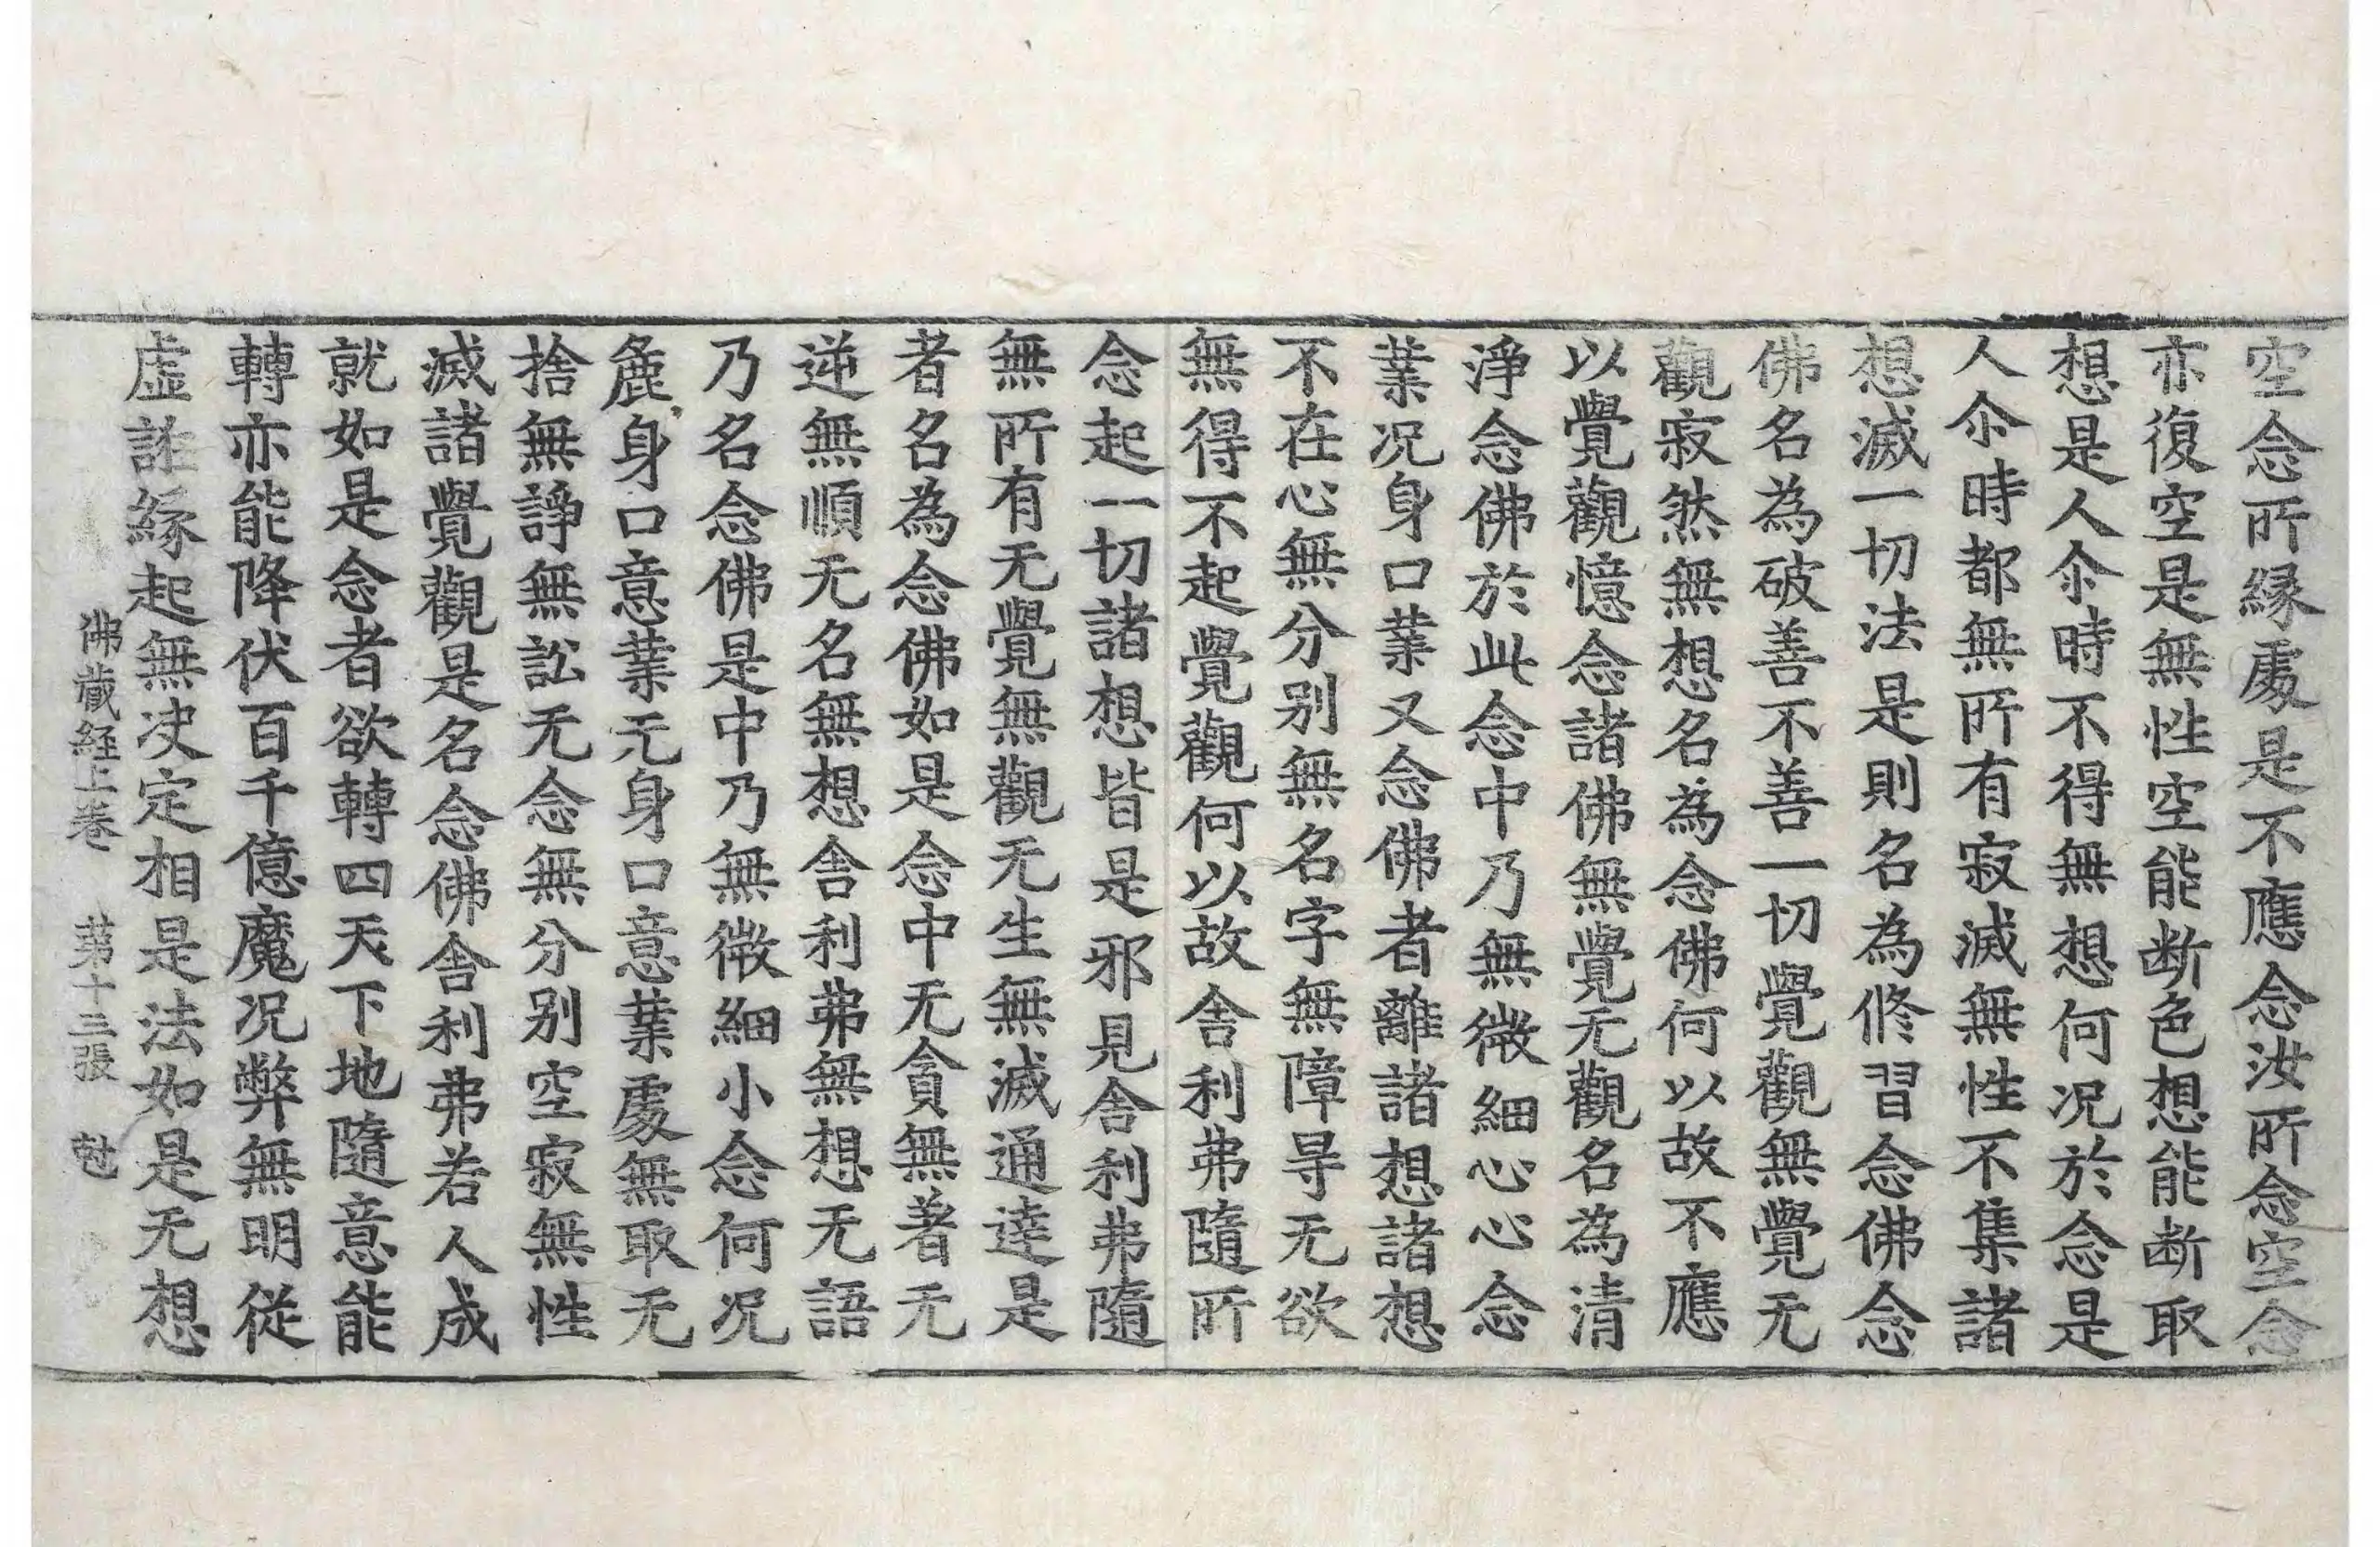 空念所縁處是不應念汝所念空念
亦復空是無性空能断色想能断取
想是人尒時不得無想何况於念是
人尒時都無所有寂滅無性不集諸
想滅一切法是則名為修習念佛念
佛名為破善不善一切覺觀無覺无
觀寂然無想名為念佛何以故不應
以覺觀憶念諸佛無覺无觀名為清
淨念佛於此念中乃無微細心心念
業况身口業又念佛者離諸想諸想
不在心無分别無名字無障㝵无欲
無得不起覺觀何以故舎利弗隨所
念起一切諸想皆是邪見舎利弗隨
無所有无覺無觀无生無滅通達是
者名為念佛如是念中无貪無著无
逆無順无名無想舎利弗無想无語
乃名念佛是中乃無微細小念何况
麁身口意業无身口意業處無取无
捨無諍無訟无念無分别空寂無性
滅諸覺觀是名念佛舎利弗若人成
就如是念者欲轉四天下地隨意能
轉亦能降伏百千億魔况弊無明従
虚誑緣起無决定相是法如是无想
佛蔵経上巻 第十三張 尅